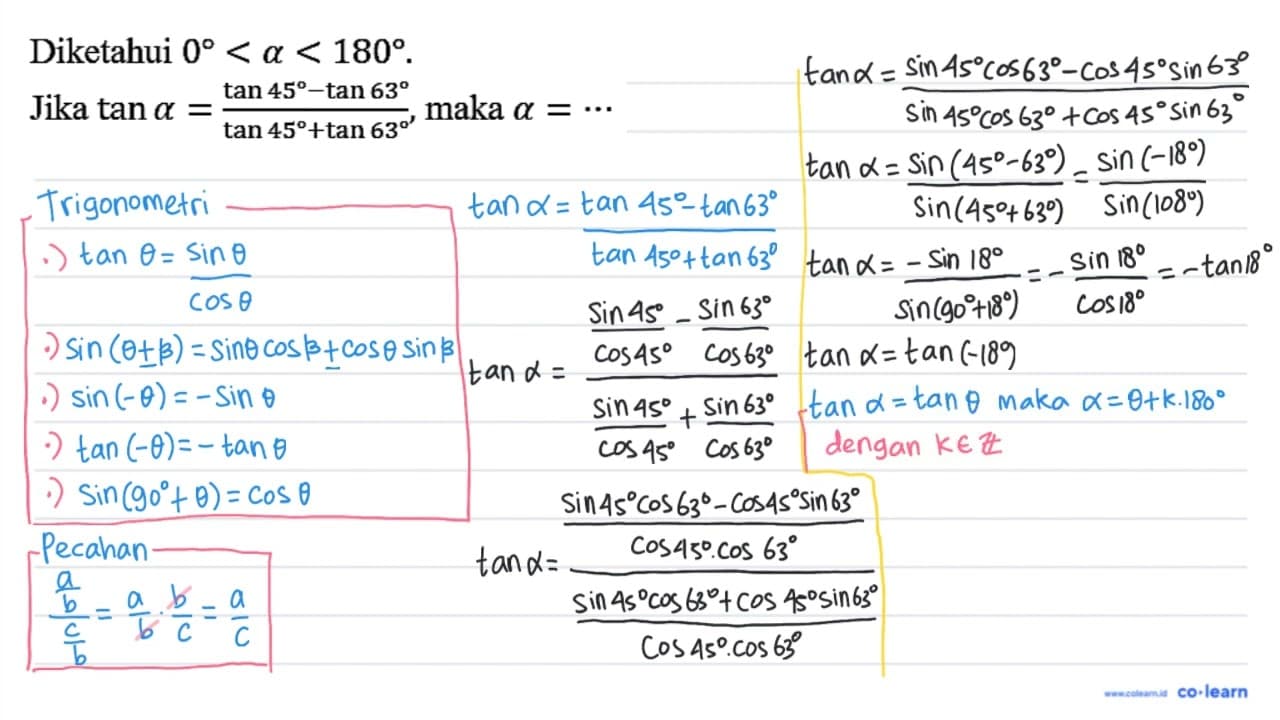 Diketahui 0° < α < 180°.
Jika tan α = (tan 45°−tan 63°)/(tan 45°+tan 63°), maka α = ⋯
Trigonometri
·) tan θ = sin θ / cos θ
·) sin(θ±β) = sinθ cosβ ± cosθ sinβ
·) sin(-θ) = - sin θ
·) tan(-θ) = - tan θ
·) sin(90°+θ) = cos θ
Pecahan
(a/b)/(c/b) = a/b · b/c = a/c
tan α = (tan 45° - tan 63°)/(tan 45° + tan 63°)
tan α = (sin 45°/cos 45° - sin 63°/cos 63°)/(sin 45°/cos 45° + sin 63°/cos 63°)
tan α = ((sin 45° cos 63° - cos 45° sin 63°)/(cos 45°. cos 63°))/((sin 45° cos 63° + cos 45° sin 63°)/(cos 45°. cos 63°))
tan α = (sin 45° cos 63° - cos 45° sin 63°)/(sin 45° cos 63° + cos 45° sin 63°)
tan α = sin(45°-63°)/sin(45°+63°) = sin(-18°)/sin(108°)
tan α = - sin 18°/sin(90°+18°) = - sin 18°/cos 18° = - tan 18°
tan α = tan(-18°)
tan α = tan θ maka α = θ + k.180°
dengan k ∈ ℤ
www.colearn.id co·learn